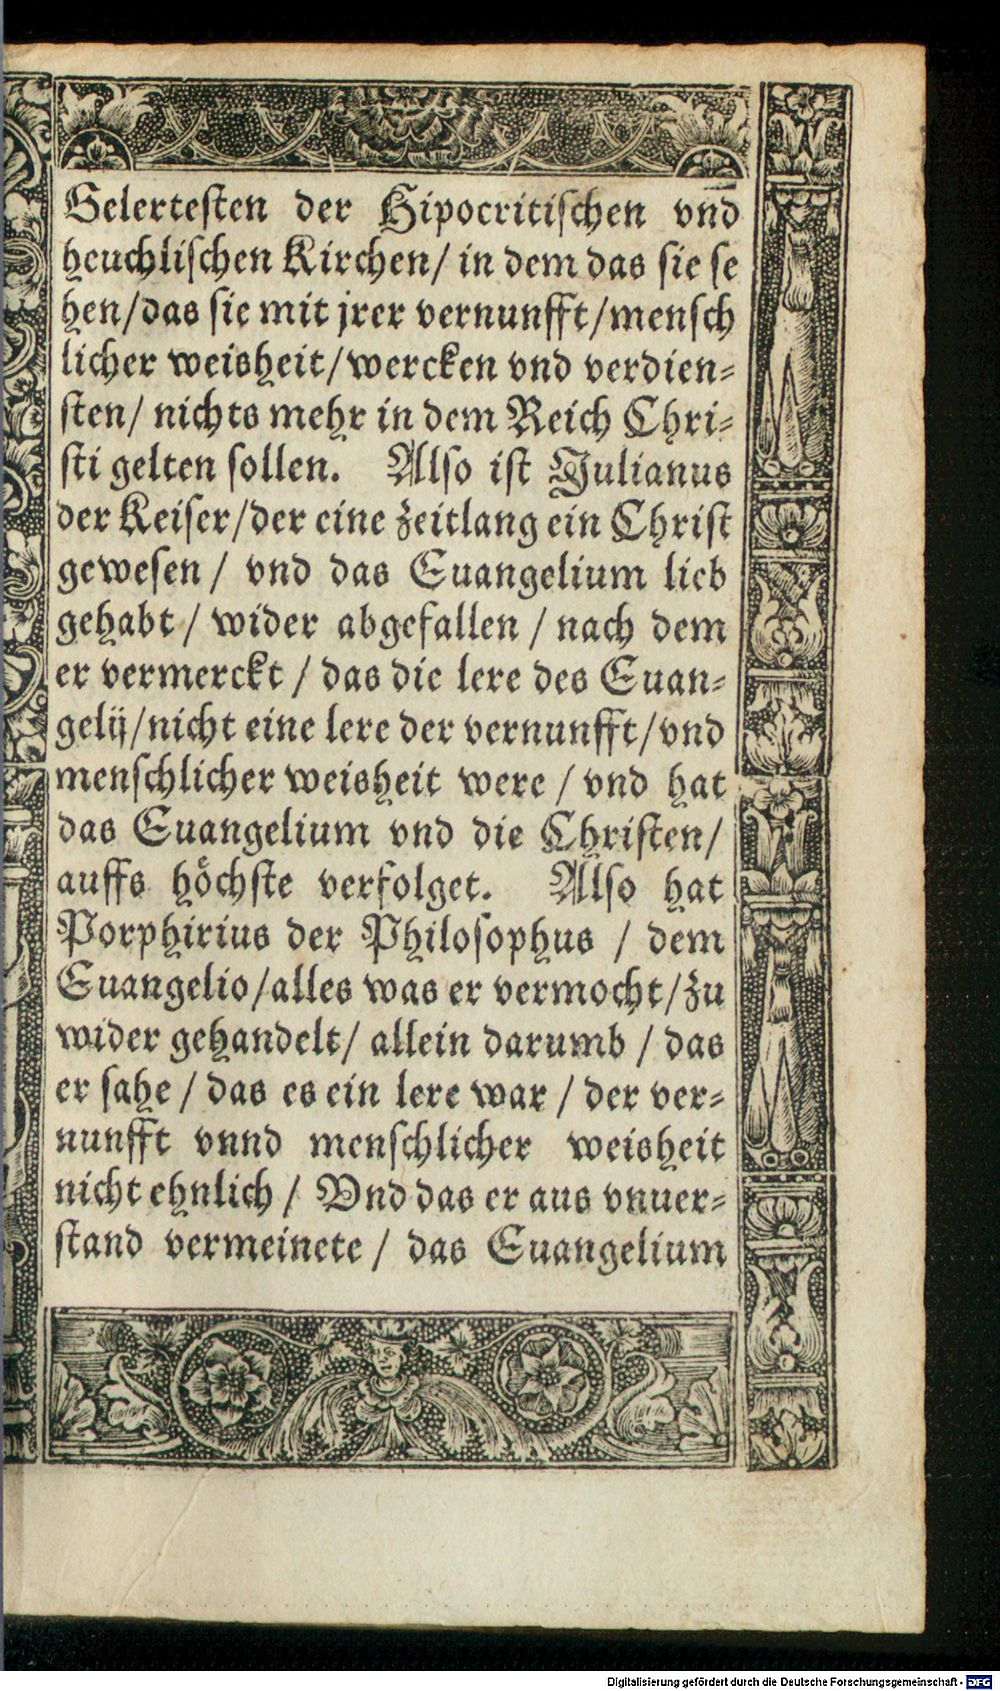 Gelertesten der Hipocritischen vn̄d
heuchlischen Kirchen/ in dem das sie se
hen/das sie mit jrer vernunfft/mensch
licher weisheit/wercken vnd verdien=
sten/ nichts mehr in dem Reich Chri=
sti gelten sollen. Also ist Julianus
der Keiser/der eine zeitlang ein Christ
gewesen / vnd das Euangelium lieb
gehabt / wider abgefallen / nach dem
er vermerckt / das die lere des Euan=
gelij/nicht eine lere der vernunfft/vnd
menschlicher weisheit were / vnd hat
das Euangelium vnd die Christen/
auffs höchste verfolget. Also hat
Porphirius der Philosophus / dem
Euangelio/alles was er vermocht/zu
wider gehandelt/ allein darumb / das
er sahe / das es ein lere war / der ver=
nunfft vnnd menschlicher weisheit
nicht ehnlich / Vnd das er aus vnuer=
stand vermeinete / das Euangelium
Digitalisierung gefördert durch die Deutsche Forschungsgemeinschaft - DFG